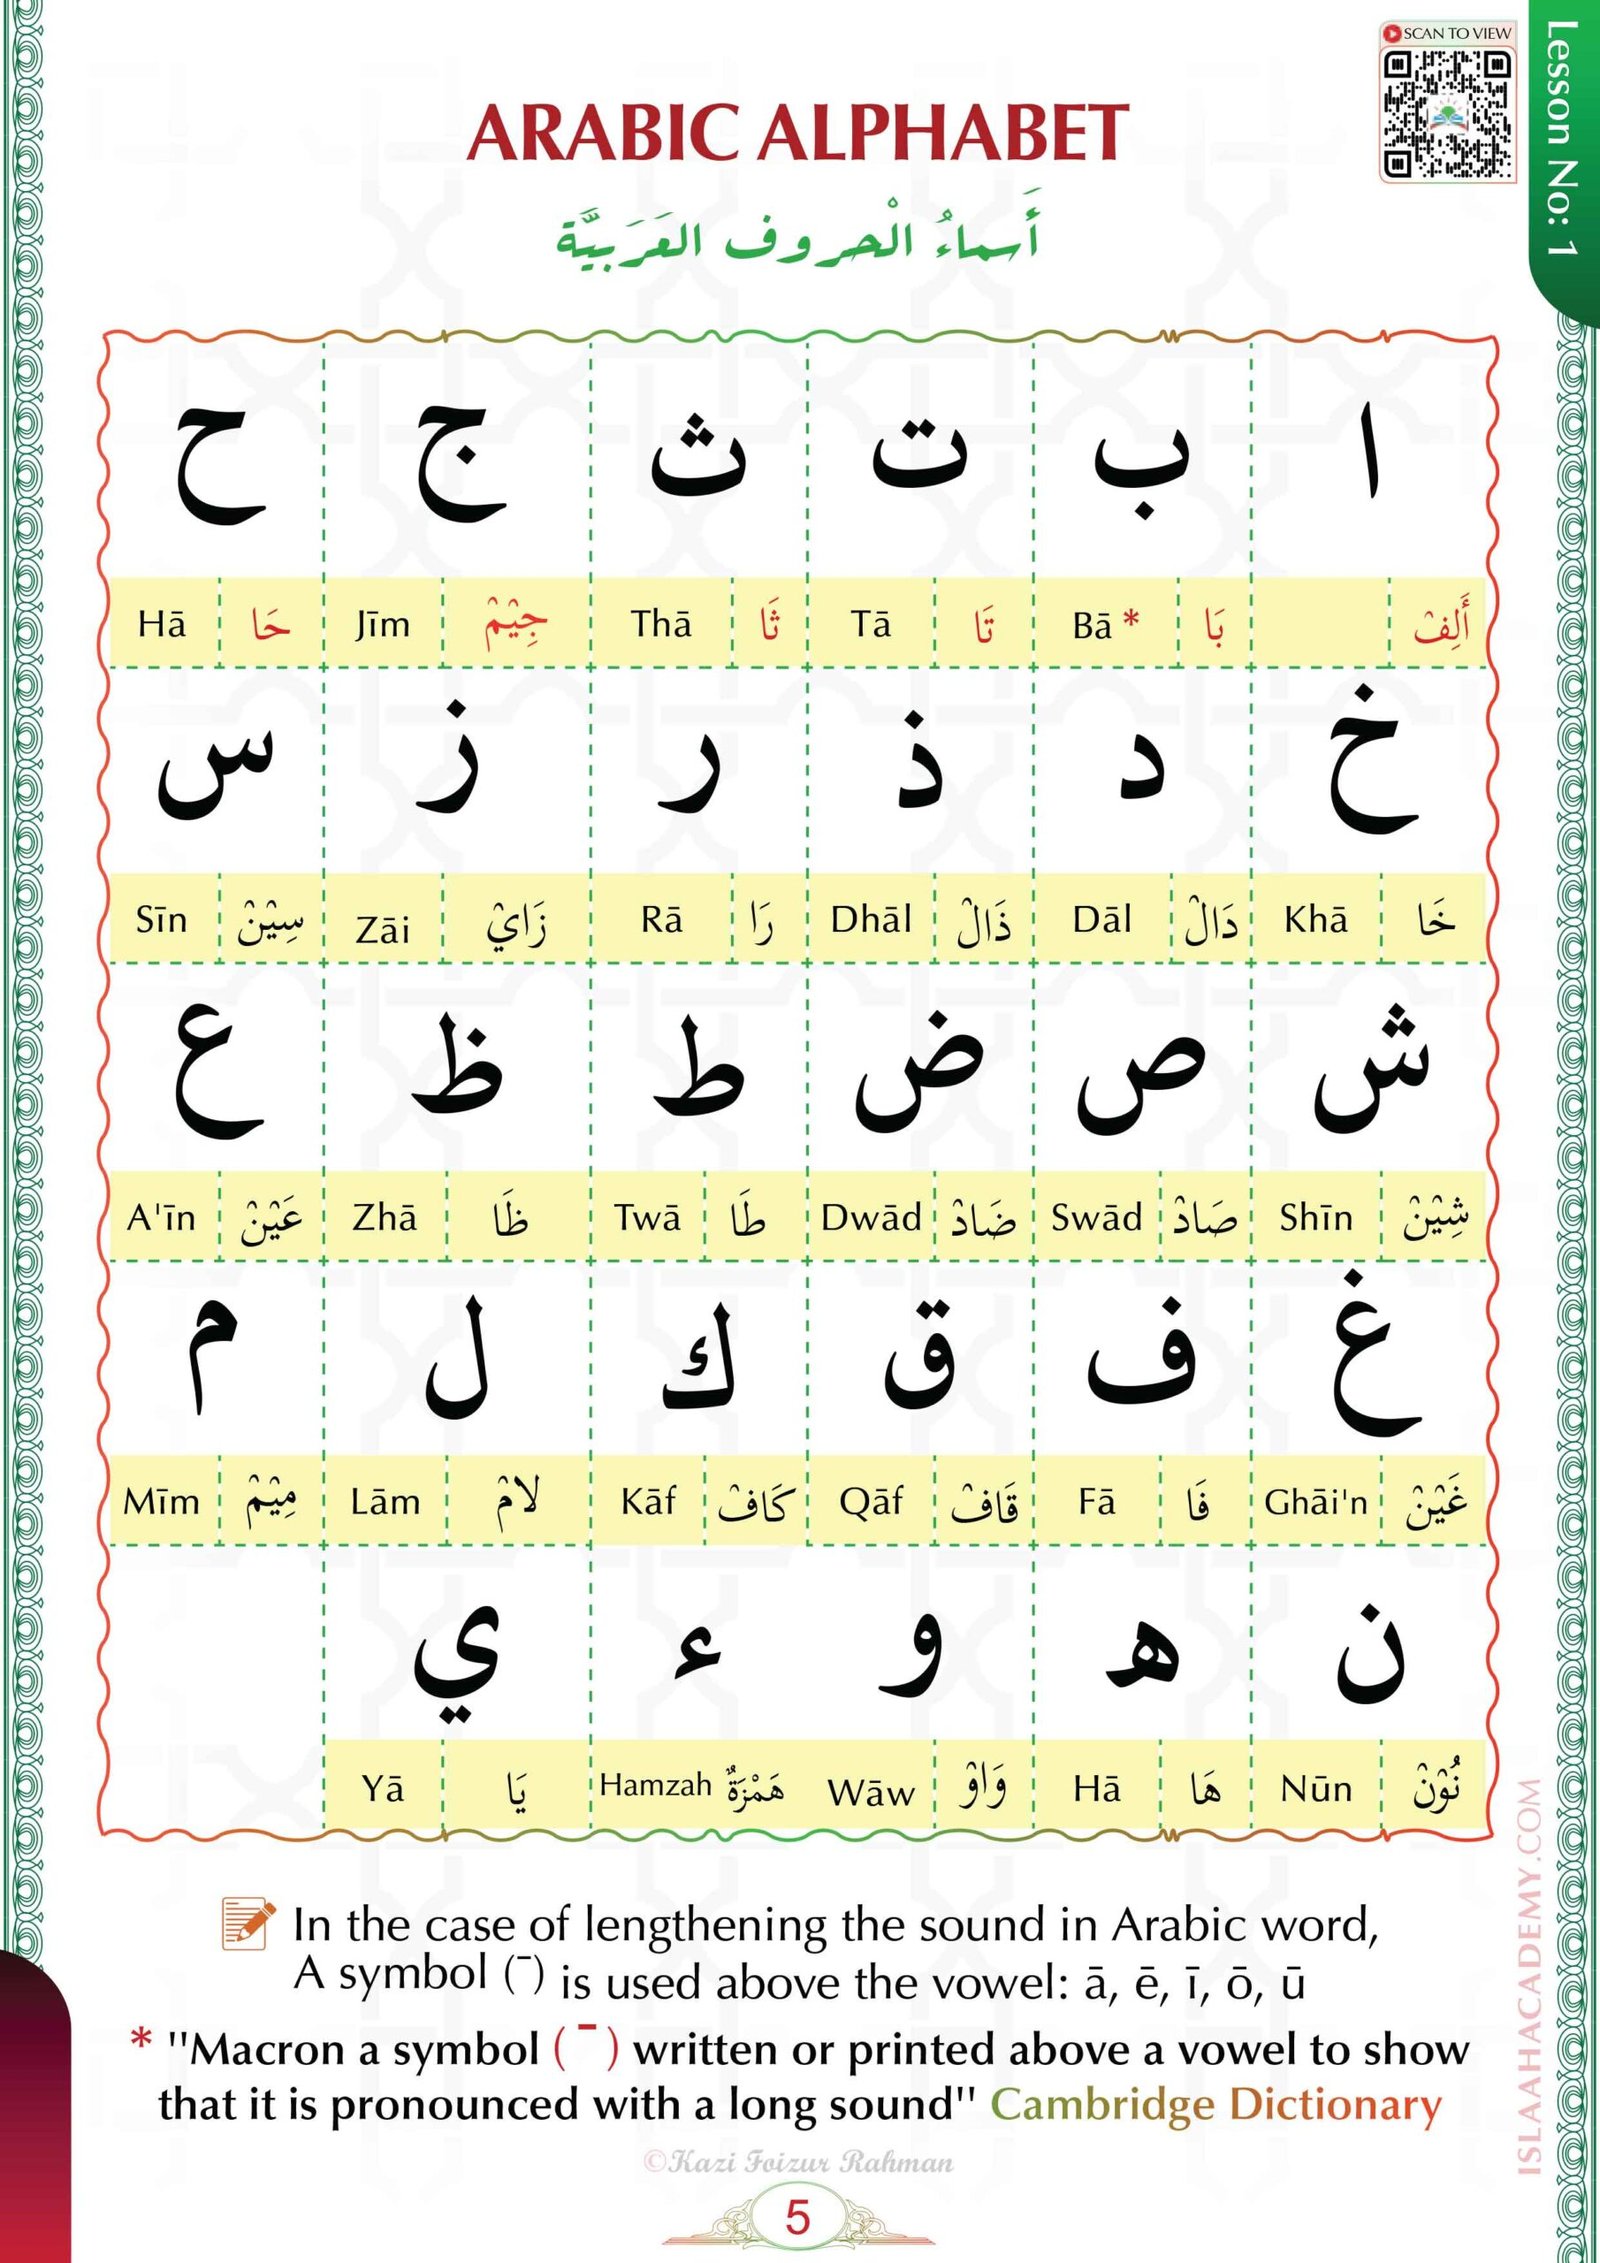 SCAN TO VIEW
Lesson No: 1
ARABIC ALPHABET
أَسماءُ الْحروف العَرَبِيَّة
ا ب ت ث ج ح
أَلِفْ بَا Bā * تَا Tā ثَا Thā جِيْمْ Jīm حَا Hā
خ د ذ ر ز س
خَا Khā دَالْ Dāl ذَالْ Dhāl رَا Rā زَايْ Zāi سِيْنْ Sīn
ش ص ض ط ظ ع
شِيْنْ Shīn صَادْ Swād ضَادْ Dwād طَا Twā ظَا Zhā عَيْنْ A'īn
غ ف ق ك ل م
غَيْنْ Ghāi'n فَا Fā قَافْ Qāf كَافْ Kāf لامْ Lām مِيْمْ Mīm
ن ه و ء ي
نُوْنْ Nūn هَا Hā وَاوْ Wāw هَمْزَةٌ Hamzah يَا Yā
In the case of lengthening the sound in Arabic word,
A symbol (¯) is used above the vowel: ā, ē, ī, ō, ū
* "Macron a symbol ( ¯ ) written or printed above a vowel to show
that it is pronounced with a long sound" Cambridge Dictionary
©Kazi Foizur Rahman
5
ISLAAHACADEMY.COM